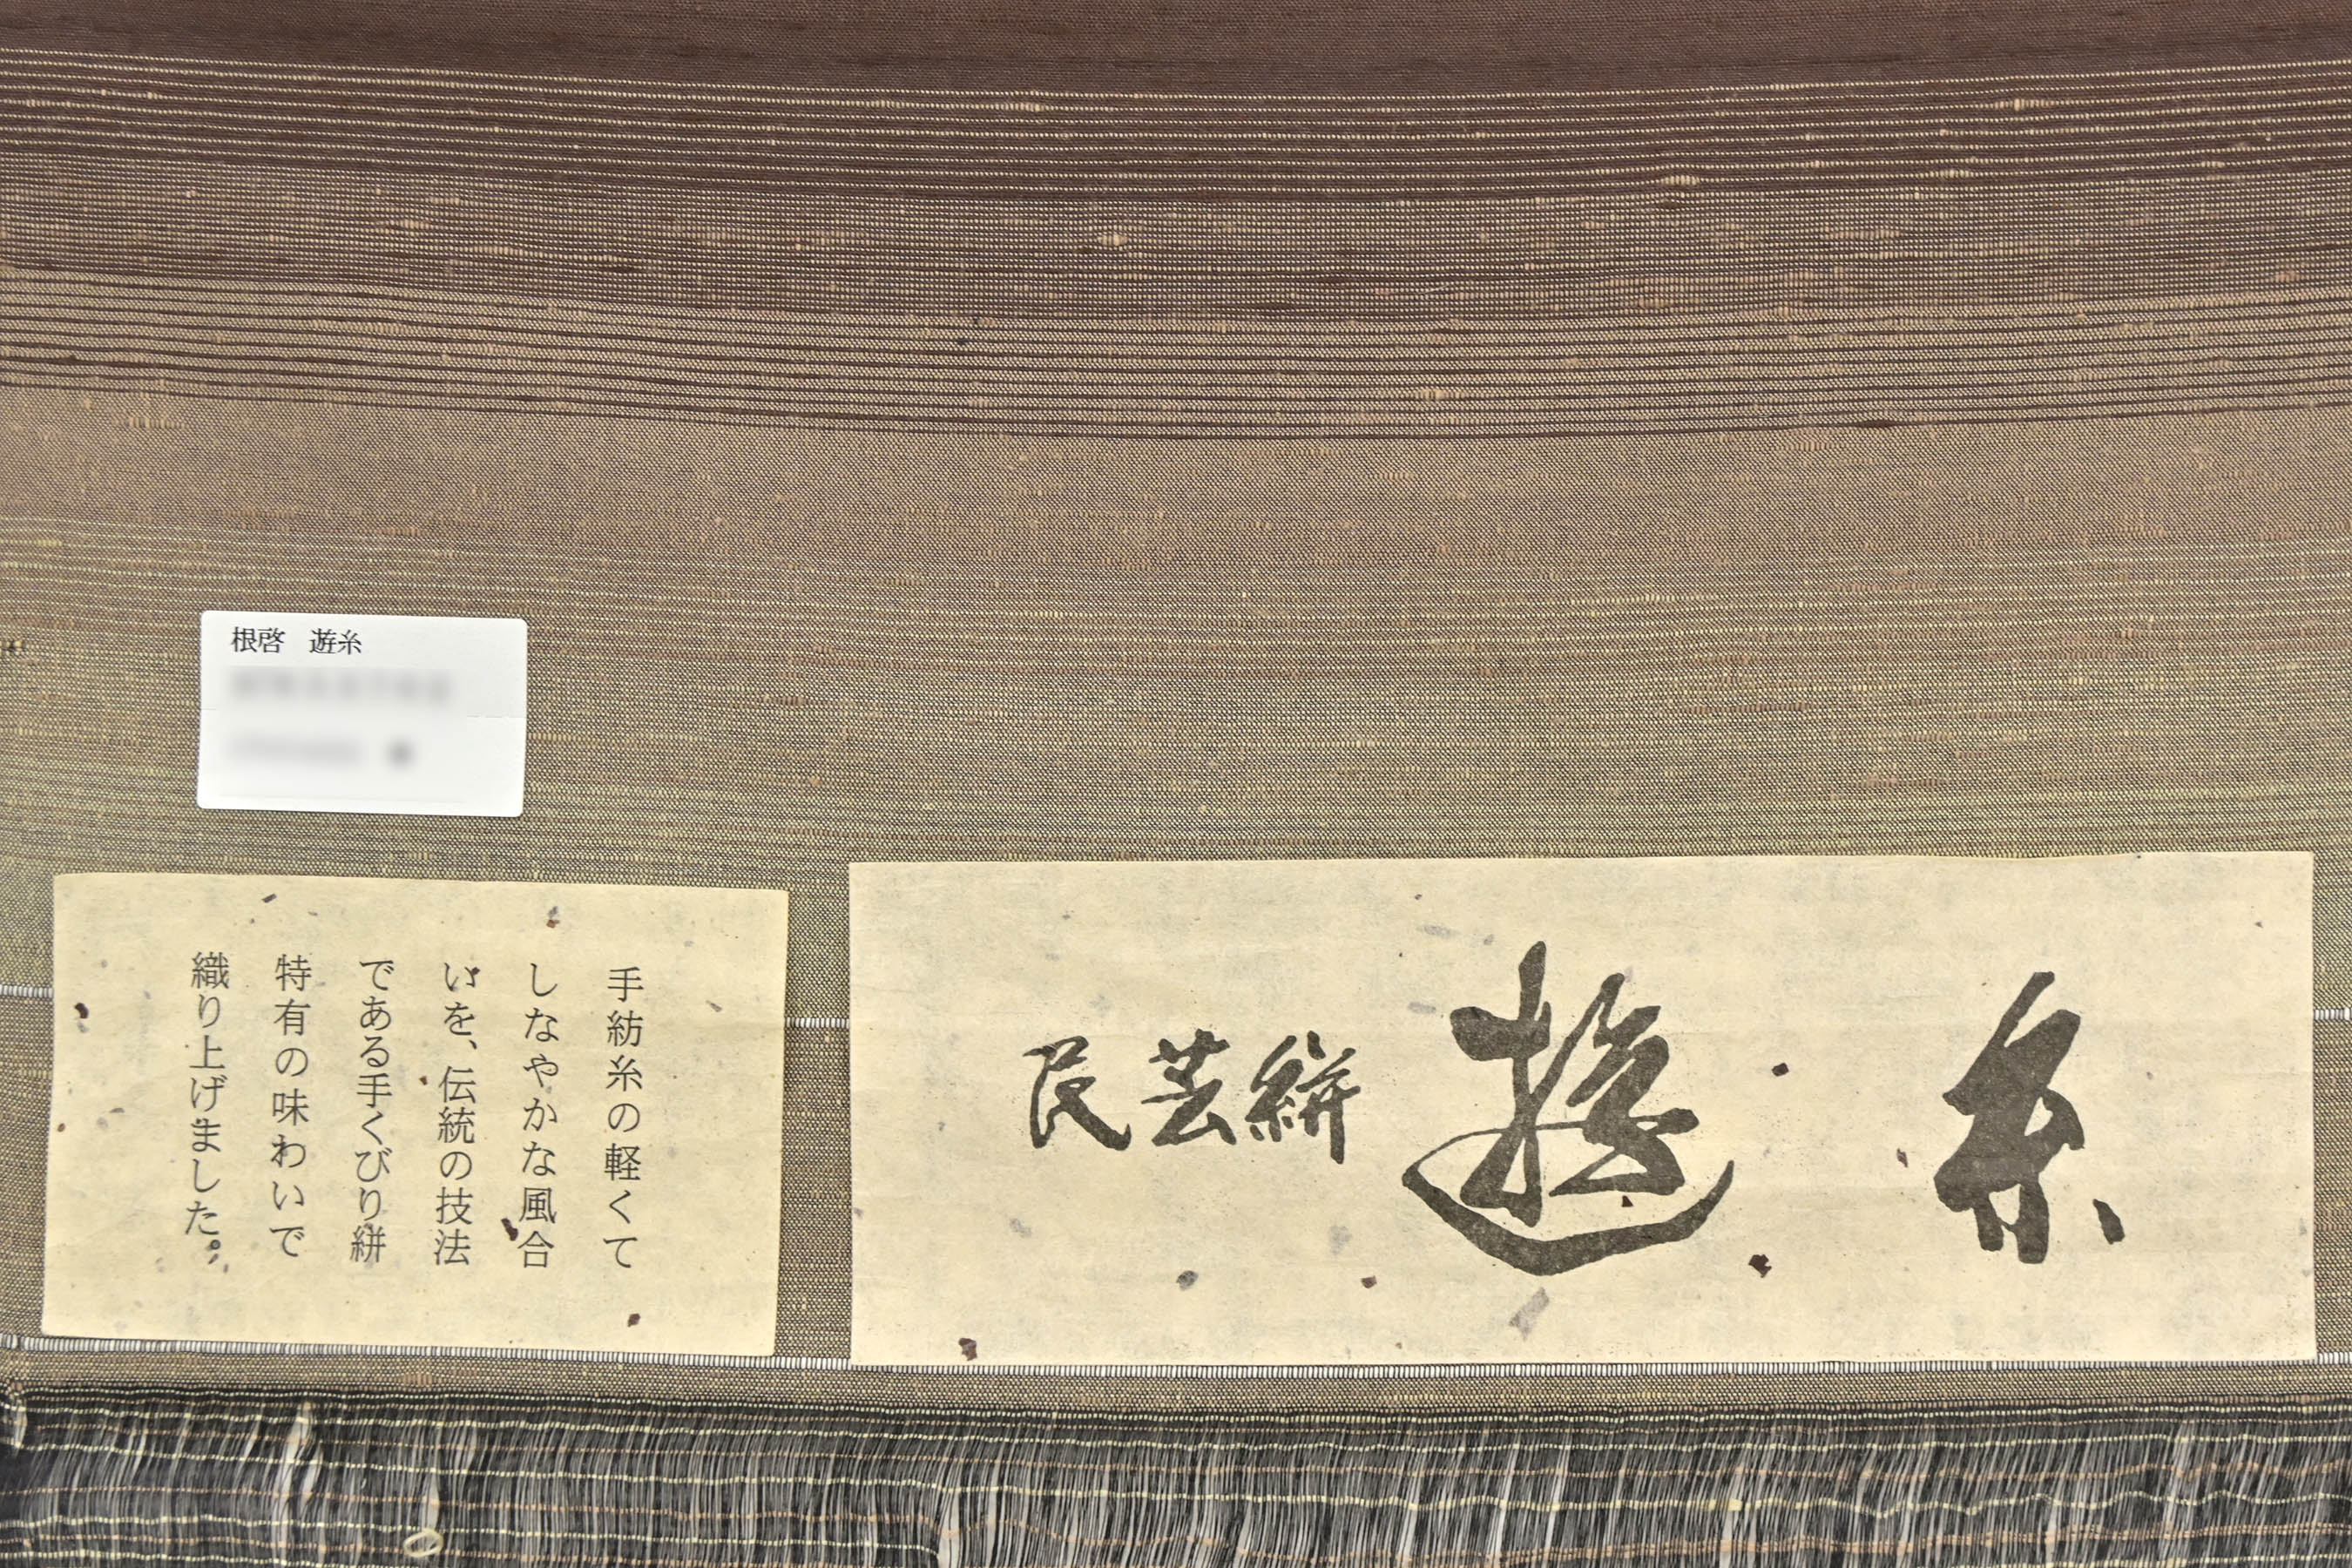 根啓 遊糸
手紡糸の軽くて
しなやかな風合
いを、伝統の技法
である手くびり絣
特有の味わいで
織り上げました。
糸遊
民芸絣